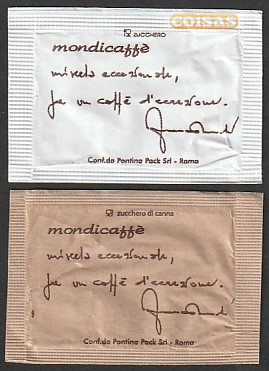 coisas
zucchero
mondicaffè
miscela eccezionale,
fa un caffè d'eccezione.
Conf.da Pontina Pack Srl - Roma
zucchero di canna
mondicaffè
miscela eccezionale,
fa un caffè d'eccezione.
Conf.da Pontina Pack Srl - Roma